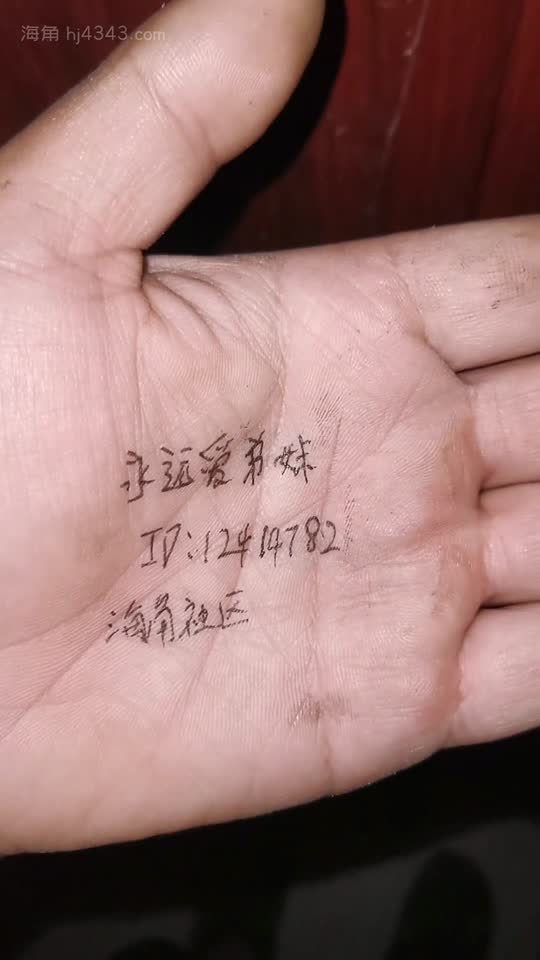 海角 hj4343.com
永远爱弟妹
ID:12414782
海角社区